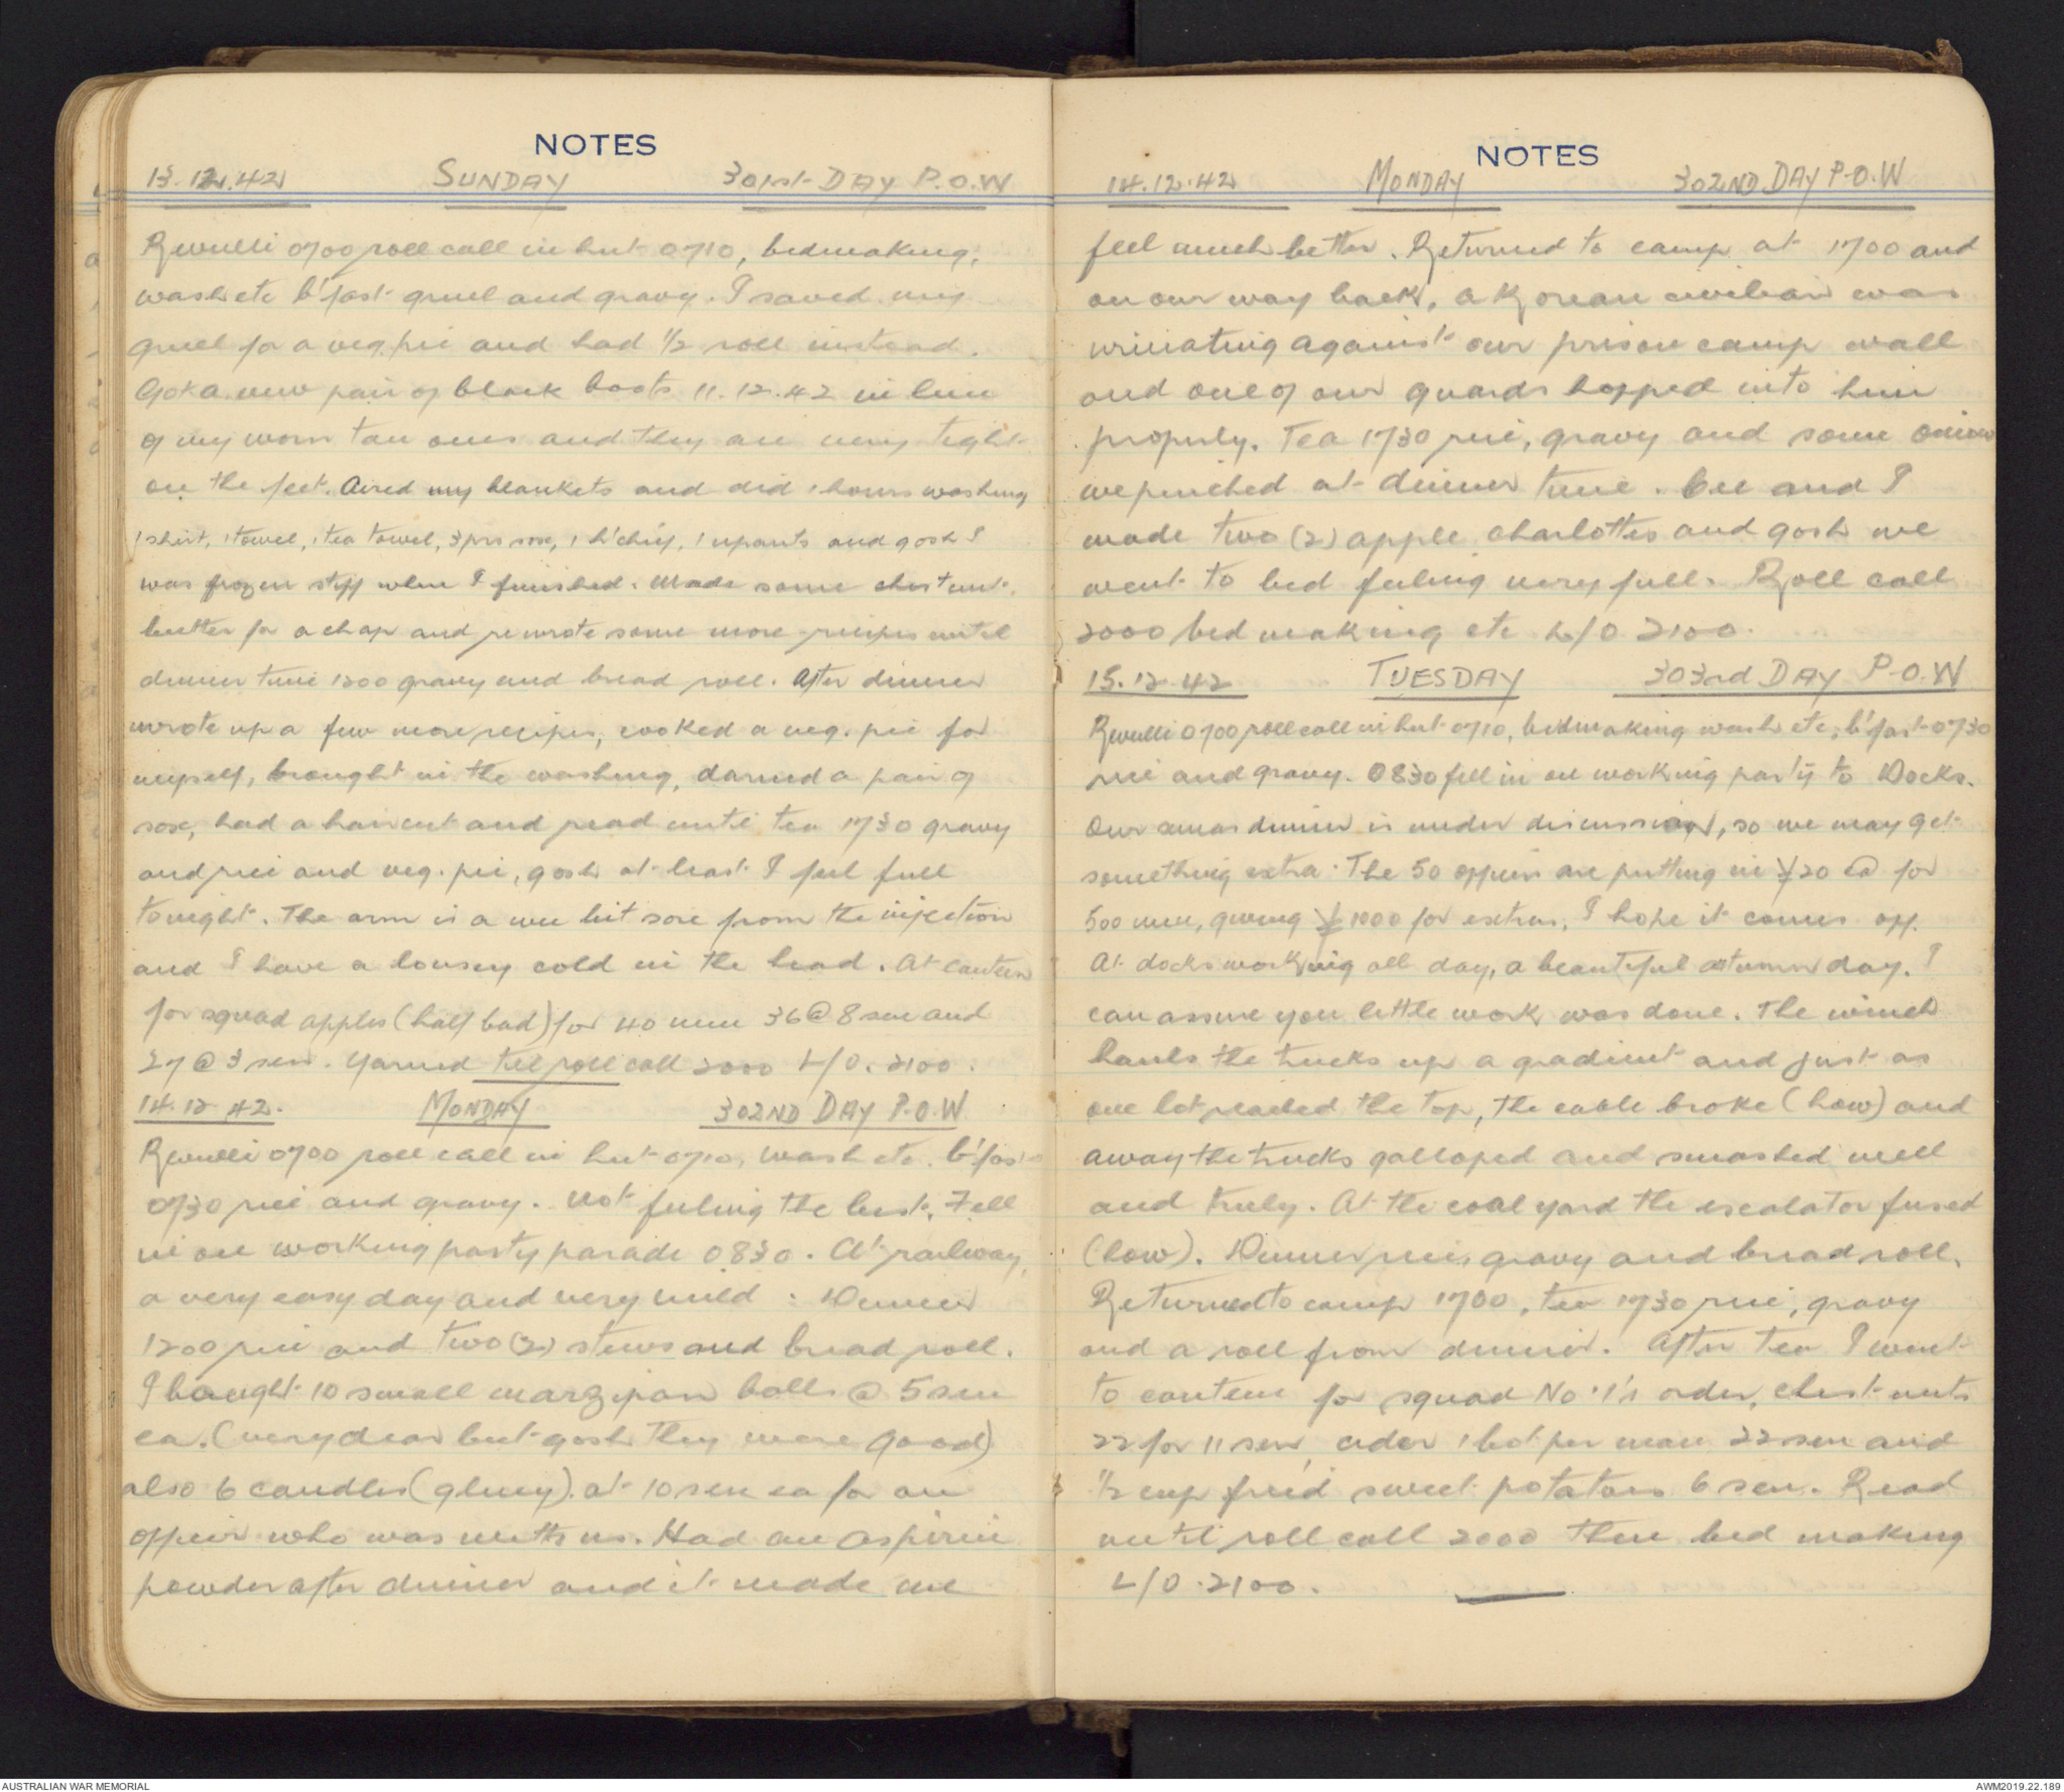 NOTES
13.12.42 SUNDAY 301st DAY P.O.W
Reveilli 0700 roll call in hut 0710, bedmaking,
wash etc b'fast gruel and gravy. I saved my
gruel for a veg. pie and had ½ roll instead.
Got a new pair of black boots 11.12.42 in lieu
of my worn tan ones and they are very tight
on the feet. Aired my blankets and did 1 hours washing
1 shirt, 1 towel, 1 tea towel, 3 prs sox, 1 h'chief, 1 upants and gosh I
was frozen stiff when I finished. Made some chestnut
butter for a chap and rewrote some more recipes until
dinner time 1200 gravy and bread roll. After dinner
wrote up a few more recipes, cooked a veg. pie for
myself, brought in the washing, darned a pair of
sox, had a haircut and read until tea 1730 gravy
and rice and veg. pie, gosh at least I feel full
tonight. The arm is a wee bit sore from the injection
and I have a lousey cold in the head. At canteen
for squad apples (half bad) for 40 men 36 @ 8 sen and
27 @ 3 sen. Yarned till roll call 2000 L/O. 2100.
14.12.42. MONDAY 302ND DAY P.O.W
Reveilli 0700 roll call in hut 0710, wash etc. b'fast
0730 rice and gravy. Not feeling the best. Fell
in on working party parade 0830. At railway,
a very easy day and very mild. Dinner
1200 rice and two (2) stews and bread roll.
I bought 10 small marzipan balls @ 5 sen
ea. (very dear but gosh they were good)
also 6 candles (gluey) at 10 sen ea for an
officer who was with us. Had an aspirin
powder after dinner and it made me
NOTES
14.12.42 MONDAY 302ND DAY P.O.W
feel much better. Returned to camp at 1700 and
on our way back, a Korean civilian was
urinating against our prison camp wall
and one of our guards hopped into him
properly. Tea 1730 rice, gravy and some onions
we pinched at dinner time. Cec and I
made two (2) apple charlottes and gosh we
went to bed feeling very full. Roll call
2000 bed making etc L/O 2100.
15.12.42 TUESDAY 303rd DAY P.O.W
Reveilli 0700 roll call in hut 0710, bedmaking wash etc, b'fast 0730
rice and gravy. 0830 fell in on working party to Docks.
Our xmas dinner is under discussion, so we may get
something extra. The 50 officers are putting in ¥20 ea for
500 men, giving ¥1000 for extras, I hope it comes off.
At docks working all day, a beautiful autumn day. I
can assure you little work was done. The winch
hauls the trucks up a gradient and just as
one lot reached the top, the cable broke (how) and
away the trucks galloped and smashed well
and truly. At the coal yard the escalator fused
(how). Dinner rice, gravy and bread roll.
Returned to camp 1700, tea 1730 rice, gravy
and a roll from dinner. After tea I went
to canteen for squad No. 1's order, chestnuts
22 for 11 sen, cider 1 bot per man 22 sen and
½ cup fried sweet potatoes 6 sen. Read
until roll call 2000 then bed making
L/O. 2100.
AUSTRALIAN WAR MEMORIAL
AWM2019.22.189